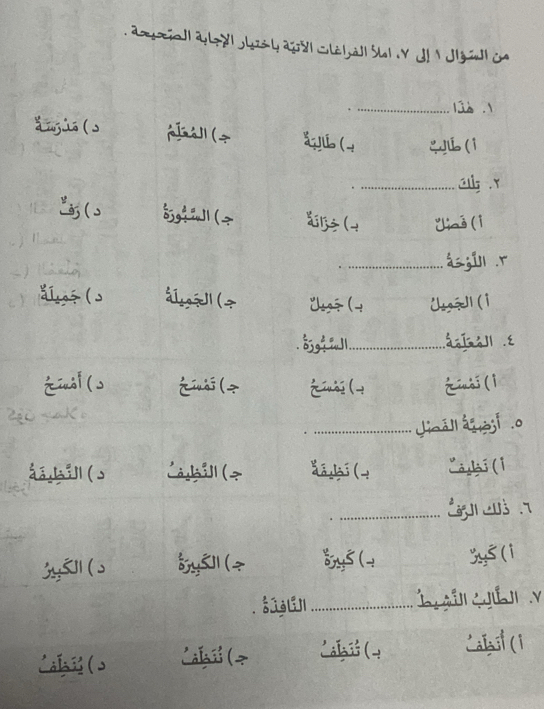 من السّؤال ١ إلى ٧، املأ الفراغات الآتية باختيار الإجابة الصّحيحة.
١. هٰذَا .......................
أ) طَالِبٌ ب) طَالِبَةٌ ج) المُعَلِّمُ د) مَدْرَسَةٌ
٢. تِلْكَ .......................
أ) فَصْلٌ ب) خِزَانَةٌ ج) السَّبُّورَةُ د) رَفٌّ
٣. اللَّوْحَةُ .......................
أ) الجَمِيلُ ب) جَمِيلٌ ج) الجَمِيلَةُ د) جَمِيلَةٌ
٤. المُعَلِّمَةُ.......................السَّبُّورَةَ.
أ) نَمْسَحُ ب) يَمْسَحُ ج) تَمْسَحُ د) أَمْسَحُ
٥. أَرْضِيَّةُ الفَصْلِ .......................
أ) نَظِيفٌ ب) نَظِيفَةٌ ج) النَّظِيفُ د) النَّظِيفَةُ
٦. ذٰلِكَ الرَّفُّ .......................
أ) كَبِيرٌ ب) كَبِيرَةٌ ج) الكَبِيرَةُ د) الكَبِيرُ
٧. الطَّالِبُ النَّشِيطُ ....................... النَّافِذَةَ.
أ) أُنَظِّفُ ب) تُنَظِّفُ ج) نُنَظِّفُ د) يُنَظِّفُ